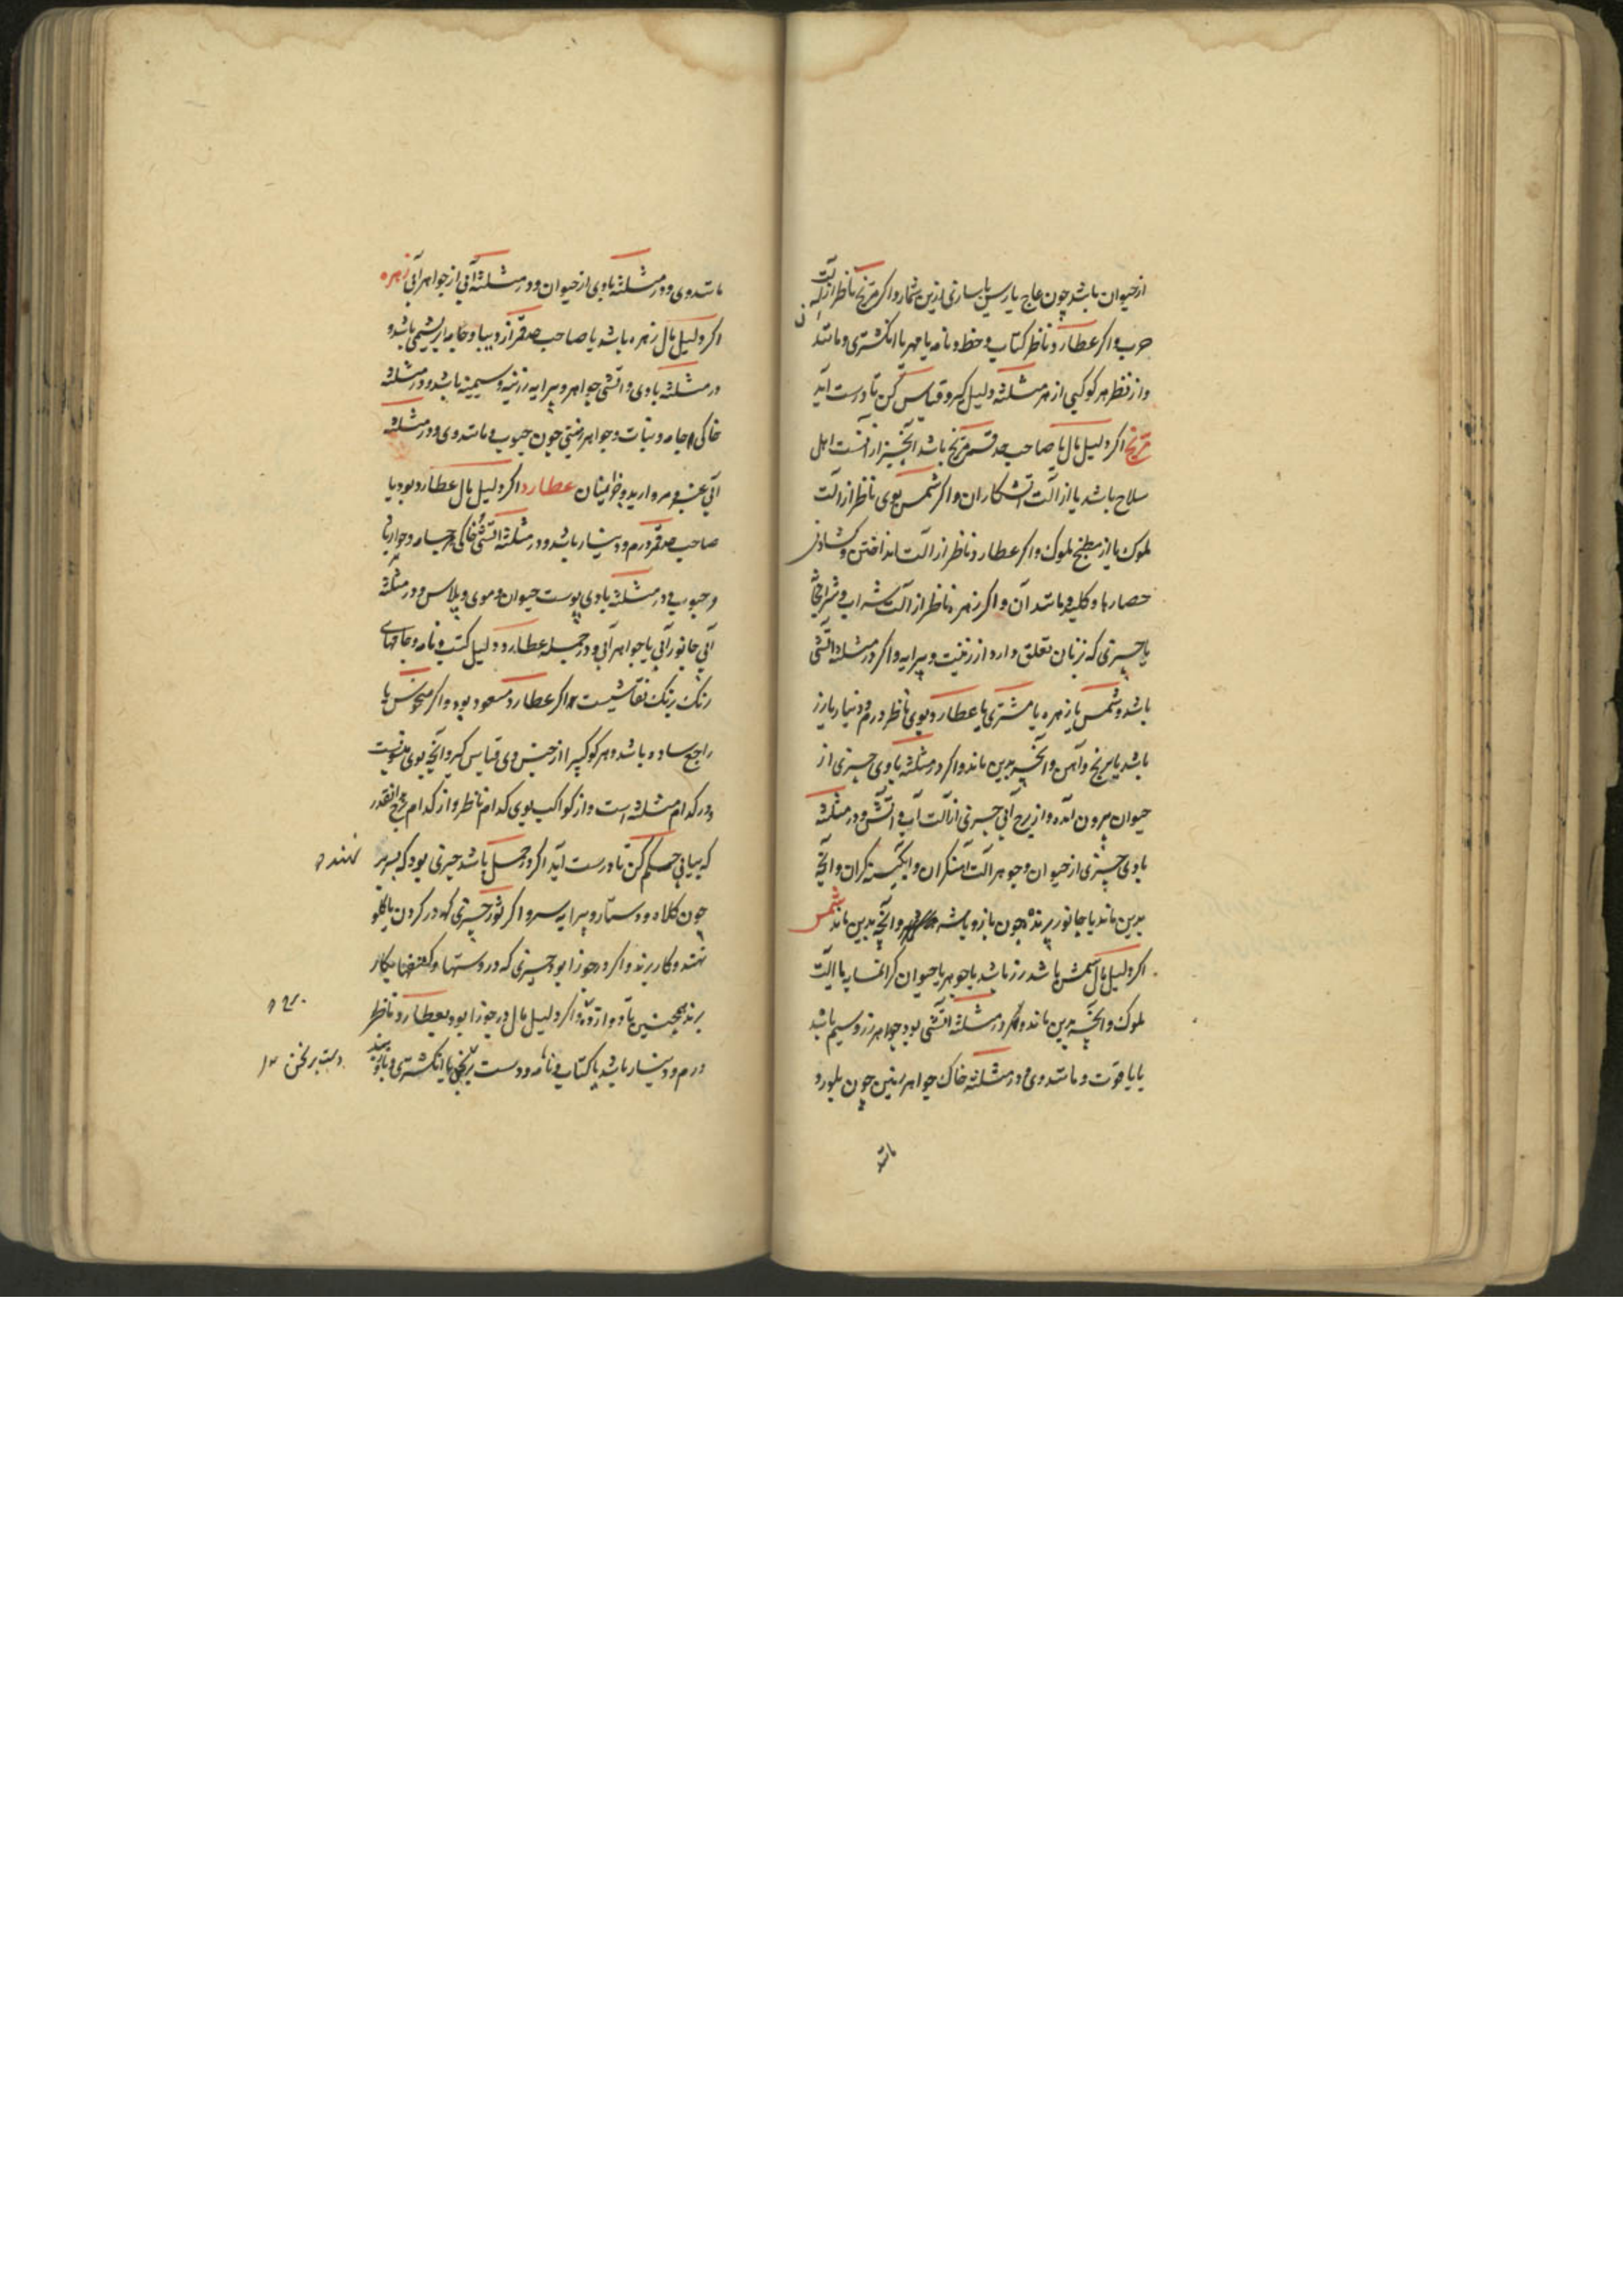 از حیوان باشد چون عاج یا ریسن یا ساری ازین شمار و اکر مریخ ناظر از آلت
حرب و اکر عطارد ناظر کتاب و خط و نامه یا مهر یا انکشتری و مانند
و از نظر هر کوکبی از هر مثلثه دلیل کیر و قیاس کن تا درست آید
مریخ اکر دلیل مال یا صاحب صدقسم مریخ باشد آنچیز از اهل
سلاح باشد یا از آلت آتشکاران و اکر شمس بوی ناظر از آلت
ملوک یا از مطبخ ملوک و اکر عطارد ناظر از آلت انداختن و کشادن
حصارها و کلید و مانند آن و اکر زهره ناظر از آلت شراب و
یا چیزی که بزنان تعلق دارد از زینت و پیرایه و اکر در مثلثه آتشی
باشد و شمس یا زهره یا مشتری یا عطارد بوی ناظر درم و دینار یا زر
باشد یا برنج و آهن و آنچه بدین ماند و اکر در مثلثه بادی چیزی از
حیوان بیرون آمده و از برج آبی چیزی از آلت آب و آتش و در مثلثه
بادی چیزی از حیوان و جوهر آلت آهنکران و آبکینه کران و آنچه
بدین ماند یا جانور پرنده چون باز و باشه و آنچه بدین ماند شمس
اکر دلیل مال شمس باشد زر باشد یا جوهر یا حیوان کرانمایه یا آلت
ملوک و آنچه بدین ماند و اکر در مثلثه آتشی بود جواهر زر و سیم باشد
یا یاقوت و مانند وی و در مثلثه خاک جواهر زمین چون بلور و
مانند
مانند وی و در مثلثه بادی از حیوان و در مثلثه آبی از جواهر آبی زهره
اکر دلیل مال زهره باشد یا صاحب صدقم از دیبا و جامه ابریشمی باشد و
در مثلثه بادی و آتشی جواهر و پیرایه زرینه و سیمینه باشد و در مثلثه
خاکی جامه و نبات و جواهر زمینی چون حبوب و مانند وی و در مثلثه
آبی عنبر و مروارید و خوانیان عطارد اکر دلیل مال عطارد بود یا
صاحب صدقم درم و دینار باشد و در مثلثه آتشی خاکی
و حبوب و در مثلثه بادی پوست حیوان و موی و پلاس و در مثلثه
آبی جانور آبی یا جواهر آبی و در جمله عطارد دلیل کتب و نامه و جامهای
رنک رنک نقاشیست اکر عطارد مسعود بود و اکر منحوس یا
راجع ساده باشد و هر کوکبیرا از جنس وی قیاس کیر و آنچه بوی منسوبست
و در کدام مثلثه است و از کواکب بوی کدام ناظر و از کدام برج آنقدر
که بیابی حکم کن تا درست آید اکر در حمل باشد چیزی بود که بسر بر نهند
چون کلاه و دستار و پیرایه سر و اکر ثور چیزی که در کردن یا کلو
نهند و کار برند و اکر در جوزا بود چیزی که در دستها و کتفها بکار
برند همچنین تا دوازده و اکر دلیل مال در جوزا بود و بعطارد ناظر
درم و دینار باشد یا کتاب و نامه و دست برنجن یا انکشتری و بازو بند
دست برنجن